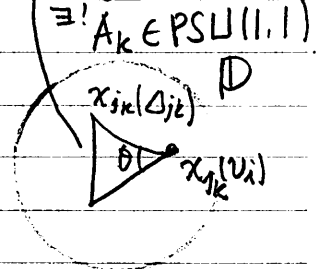 ∃! A_k ∈ PSU(1,1)
𝔻
x_{jk}(Δ_{jk})
θ
x_{jk}(v_i)